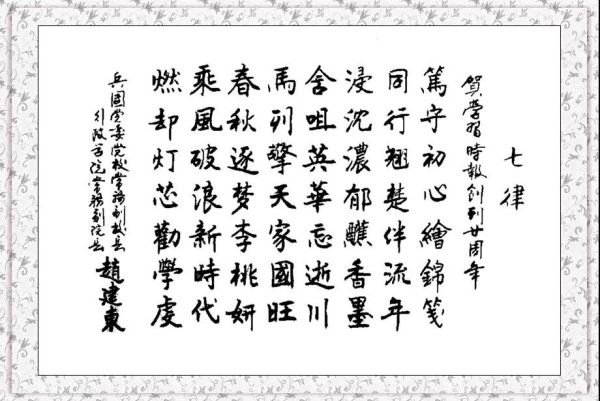 七律
賀學習時報創刊廿周年
篤守初心繪錦箋
同行翘楚伴流年
浸沈濃郁醮香墨
含咀英華忘逝川
馬列擎天家國旺
春秋逐梦李桃妍
乘風破浪新時代
燃却灯芯勸學虔
兵団党委党校常務副校長
行政学院常務副院長
趙建東